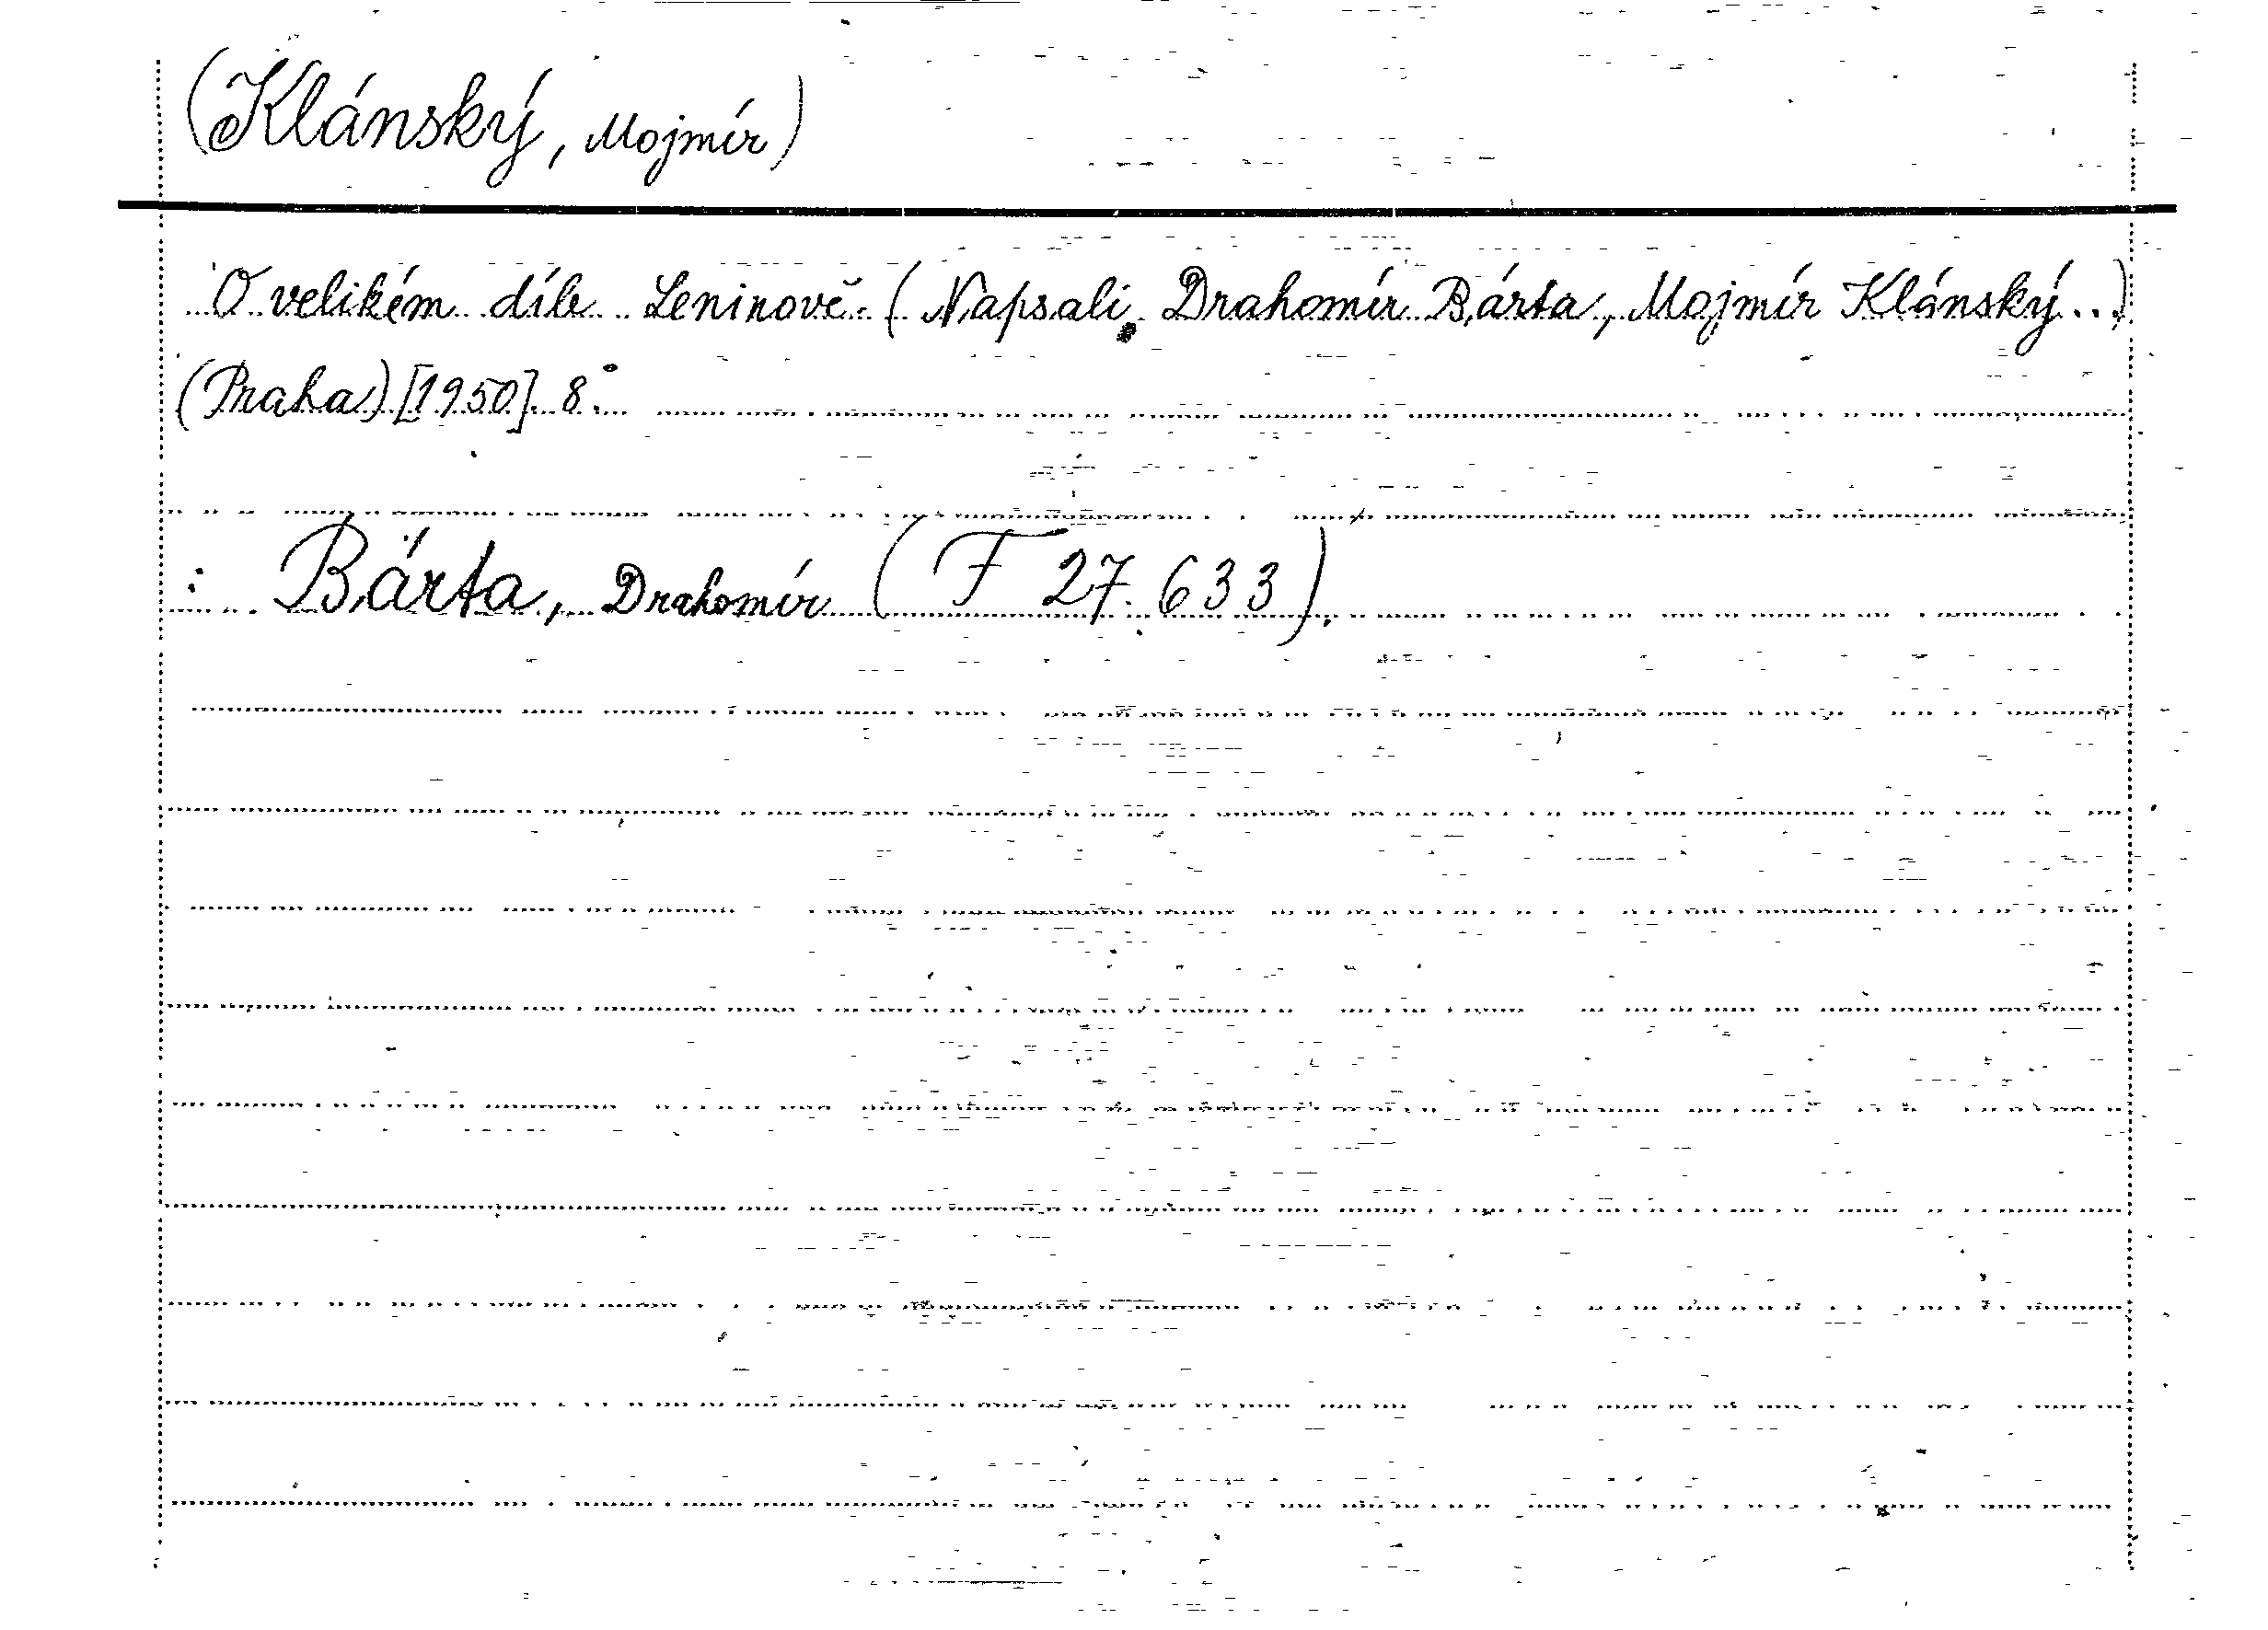 (Klánský, Mojmír)
O velikém díle Leninově. (Napsali, Drahomír Bárta, Mojmír Klánský..)
(Praha) [1950]. 8°.
: Bárta, Drahomír (F 27.633).